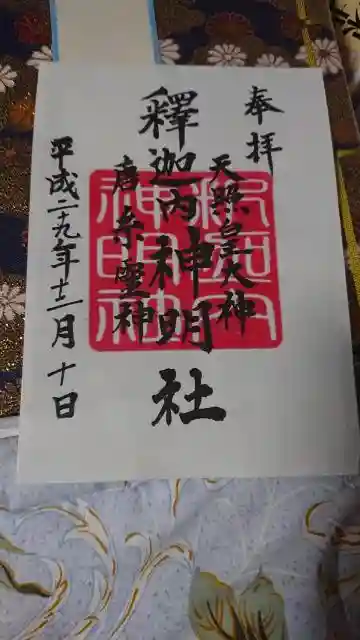 奉拝
天照皇大神
釋迦内神明社
唐糸霊神
平成二十九年十二月十日
釈迦内神明社